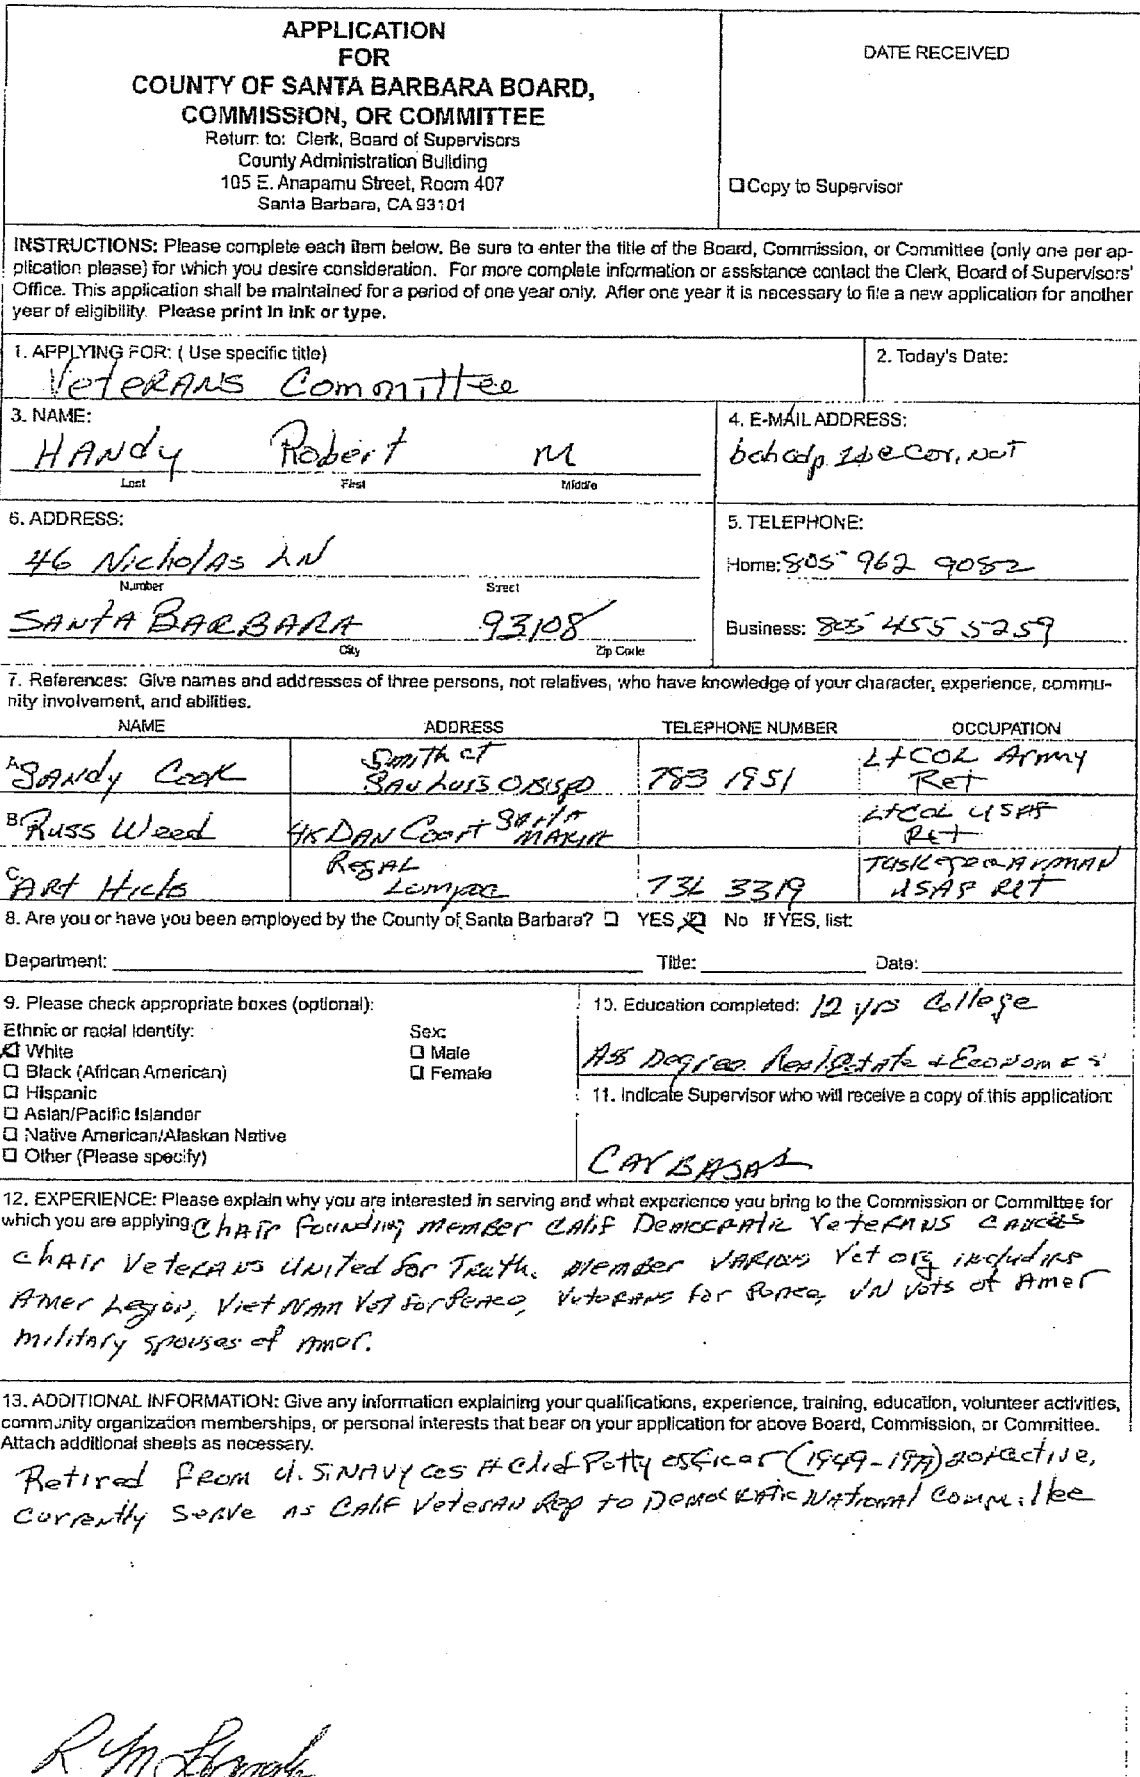 APPLICATION
FOR
COUNTY OF SANTA BARBARA BOARD,
COMMISSION, OR COMMITTEE
Return to: Clerk, Board of Supervisors
County Administration Building
105 E. Anapamu Street, Room 407
Santa Barbara, CA 93101
DATE RECEIVED
Copy to Supervisor
INSTRUCTIONS: Please complete each item below. Be sure to enter the title of the Board, Commission, or Committee (only one per ap-
plication please) for which you desire consideration. For more complete information or assistance contact the Clerk, Board of Supervisors'
Office. This application shall be maintained for a period of one year only. After one year it is necessary to file a new application for another
year of eligibility. Please print in ink or type.
1. APPLYING FOR: ( Use specific title)
VeteRANS Committee
2. Today's Date:
3. NAME:
HANdy Robert M
Last First Middle
4. E-MAIL ADDRESS:
6. ADDRESS:
46 NicholAs LN
Number Street
SANtA BARBARA 93108
City Zip Code
5. TELEPHONE:
Home: 805 962 9082
Business: 805 455 5259
7. References: Give names and addresses of three persons, not relatives, who have knowledge of your character, experience, commu-
nity involvement, and abilities.
NAME ADDRESS TELEPHONE NUMBER OCCUPATION
A. SANdy Cook Smith ct SAN LUIS OBISPO 783 1951 LtCOL Army Ret
B. Russ Weed DAN Court SANTA MARIA LtCol USAF RET
C. ARt Hicks REGAL Lompoc 736 3319 Tuskegee AirMAN USAF Ret
8. Are you or have you been employed by the County of Santa Barbara? YES No If YES, list:
Department: Title: Date:
9. Please check appropriate boxes (optional):
Ethnic or racial identity: Sex:
White Male
Black (African American) Female
Hispanic
Asian/Pacific Islander
Native American/Alaskan Native
Other (Please specify)
10. Education completed: 12 yrs College
Ass Degree Real Estate + Economics
11. Indicate Supervisor who will receive a copy of this application:
CARBAJAL
12. EXPERIENCE: Please explain why you are interested in serving and what experience you bring to the Commission or Committee for
which you are applying. ChAir Founding MEMBER CALIF DEMOCRATIC VeteRANS CAUCUS
ChAir VeteRANS UNited for Truth. MEMBER VARIOUS Vet org including
AMER Legion, Viet NAM Vet for Peace, VeteRANS for Peace, VN Vets of Amer
military spouses of Amer.
13. ADDITIONAL INFORMATION: Give any information explaining your qualifications, experience, training, education, volunteer activities,
community organization memberships, or personal interests that bear on your application for above Board, Commission, or Committee.
Attach additional sheets as necessary.
Retired from U.S. NAVY as A Chief Petty officer
Currently Serve AS CALIF VeteRAN Rep to DEMOCRATIC NAtional Committee